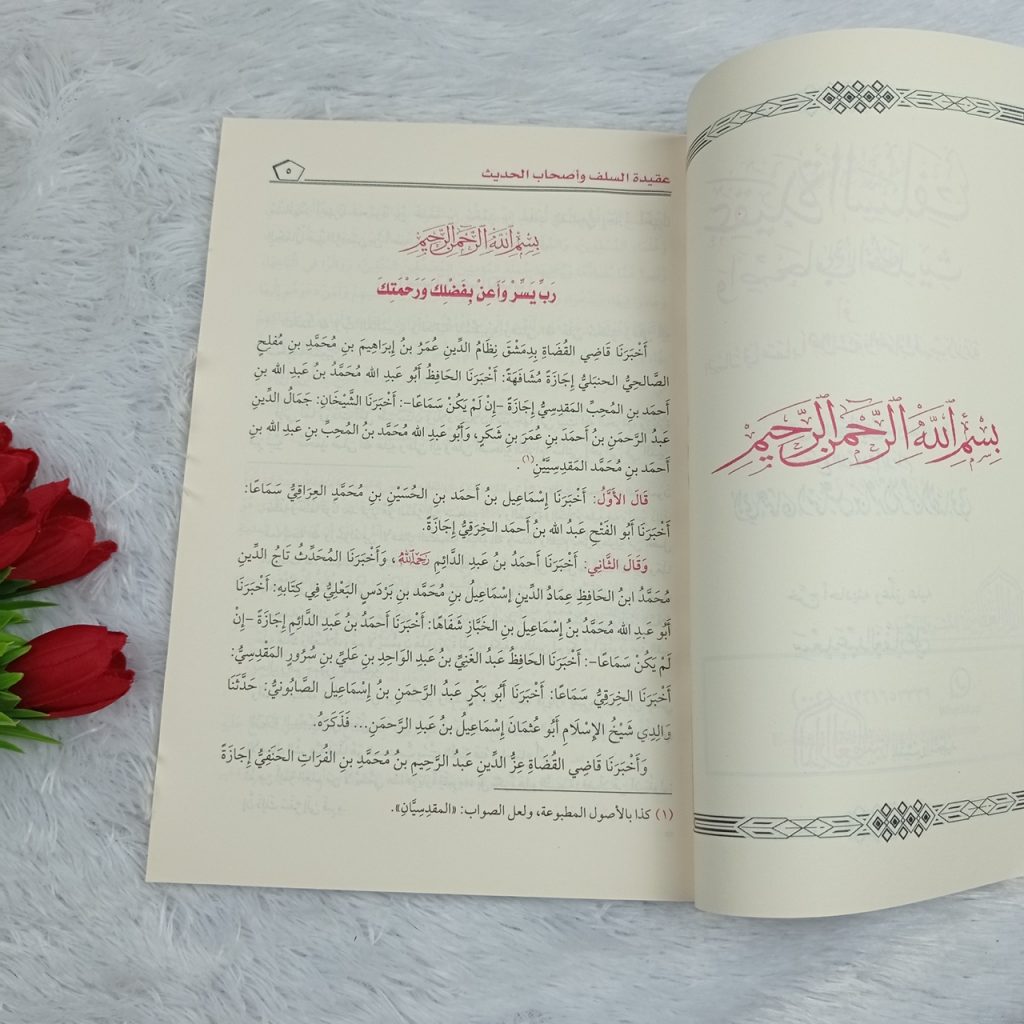 بِسْمِ اللَّهِ الرَّحْمَنِ الرَّحِيمِ
عقيدة السلف وأصحاب الحديث
٥
بِسْمِ اللَّهِ الرَّحْمَنِ الرَّحِيمِ
رَبِّ يَسِّرْ وَأَعِنْ بِفَضْلِكَ وَرَحْمَتِكَ
أَخْبَرَنَا قَاضِي القُضَاةِ بِدِمَشْقَ نِظَامُ الدِّينِ عُمَرُ بنُ إِبرَاهِيمَ بنِ مُحَمَّدِ بنِ مُفلِحٍ
الصَّالحِيُّ الحنبَلِيُّ إِجَازَةً مُشَافَهَةً: أَخْبَرَنَا الحَافِظُ أَبُو عَبدِ الله مُحَمَّدُ بنُ عَبدِ الله بنِ
أَحمَد بنِ المُحِبِّ المَقدِسِيُّ إِجَازَةً –إِنْ لَمْ يَكُنْ سَمَاعًا–: أَخْبَرَنَا الشَّيْخَانِ: جَمَالُ الدِّينِ
عَبدُ الرَّحمَنِ بنُ أَحمَدَ بنِ عُمَرَ بنِ شَكَرٍ، وَأَبُو عَبدِ الله مُحَمَّد بنُ المُحِبِّ بنِ عَبدِ الله بنِ
أَحمَد بنِ مُحَمَّد المَقدِسِيَّيْنِ(١).
قَالَ الأَوَّلُ: أَخْبَرَنَا إِسْمَاعِيل بنُ أَحمَد بنِ الحُسَيْنِ بنِ مُحَمَّدٍ العِرَاقِيُّ سَمَاعًا:
أَخْبَرَنَا أَبُو الفَتْحِ عَبدُ الله بنُ أَحمَد الخِرَقِيُّ إِجَازَةً.
وَقَالَ الثَّانِي: أَخْبَرَنَا أَحمَدُ بنُ عَبدِ الدَّائِمِ رَحِمَهُ اللَّهُ، وَأَخْبَرَنَا المُحَدِّثُ تَاجُ الدِّينِ
مُحَمَّدُ ابنُ الحَافِظِ عِمَادُ الدِّينِ إِسمَاعِيلُ بنِ مُحَمَّدِ بنِ بَرْدَسٍ البَعْلِيُّ فِي كِتَابِهِ: أَخْبَرَنَا
أَبُو عَبدِ الله مُحَمَّدُ بنُ إِسْمَاعِيلَ بنِ الخَبَّازِ شَفَاهًا: أَخْبَرَنَا أَحمَدُ بنُ عَبدِ الدَّائِمِ إِجَازَةً –إِنْ
لَمْ يَكُنْ سَمَاعًا–: أَخْبَرَنَا الحَافِظُ عَبدُ الغَنِيِّ بنُ عَبدِ الوَاحِدِ بنِ عَلِيِّ بنِ سُرُورٍ المَقْدِسِيُّ:
أَخْبَرَنَا الخِرَقِيُّ سَمَاعًا: أَخْبَرَنَا أَبُو بَكْرٍ عَبدُ الرَّحمَنِ بنُ إِسْمَاعِيلَ الصَّابُونِيُّ: حَدَّثَنَا
وَالِدِي شَيْخُ الإِسْلَامِ أَبُو عُثمَانَ إِسْمَاعِيلُ بنُ عَبدِ الرَّحمَنِ... فَذَكَرَهُ.
وَأَخْبَرَنَا قَاضِي القُضَاةِ عِزُّ الدِّينِ عَبدُ الرَّحِيمِ بنُ مُحَمَّدِ بنِ الفُرَاتِ الحَنَفِيُّ إِجَازَةً
(١) كذا بالأصول المطبوعة، ولعل الصواب: «المقدِسِيَّانِ».